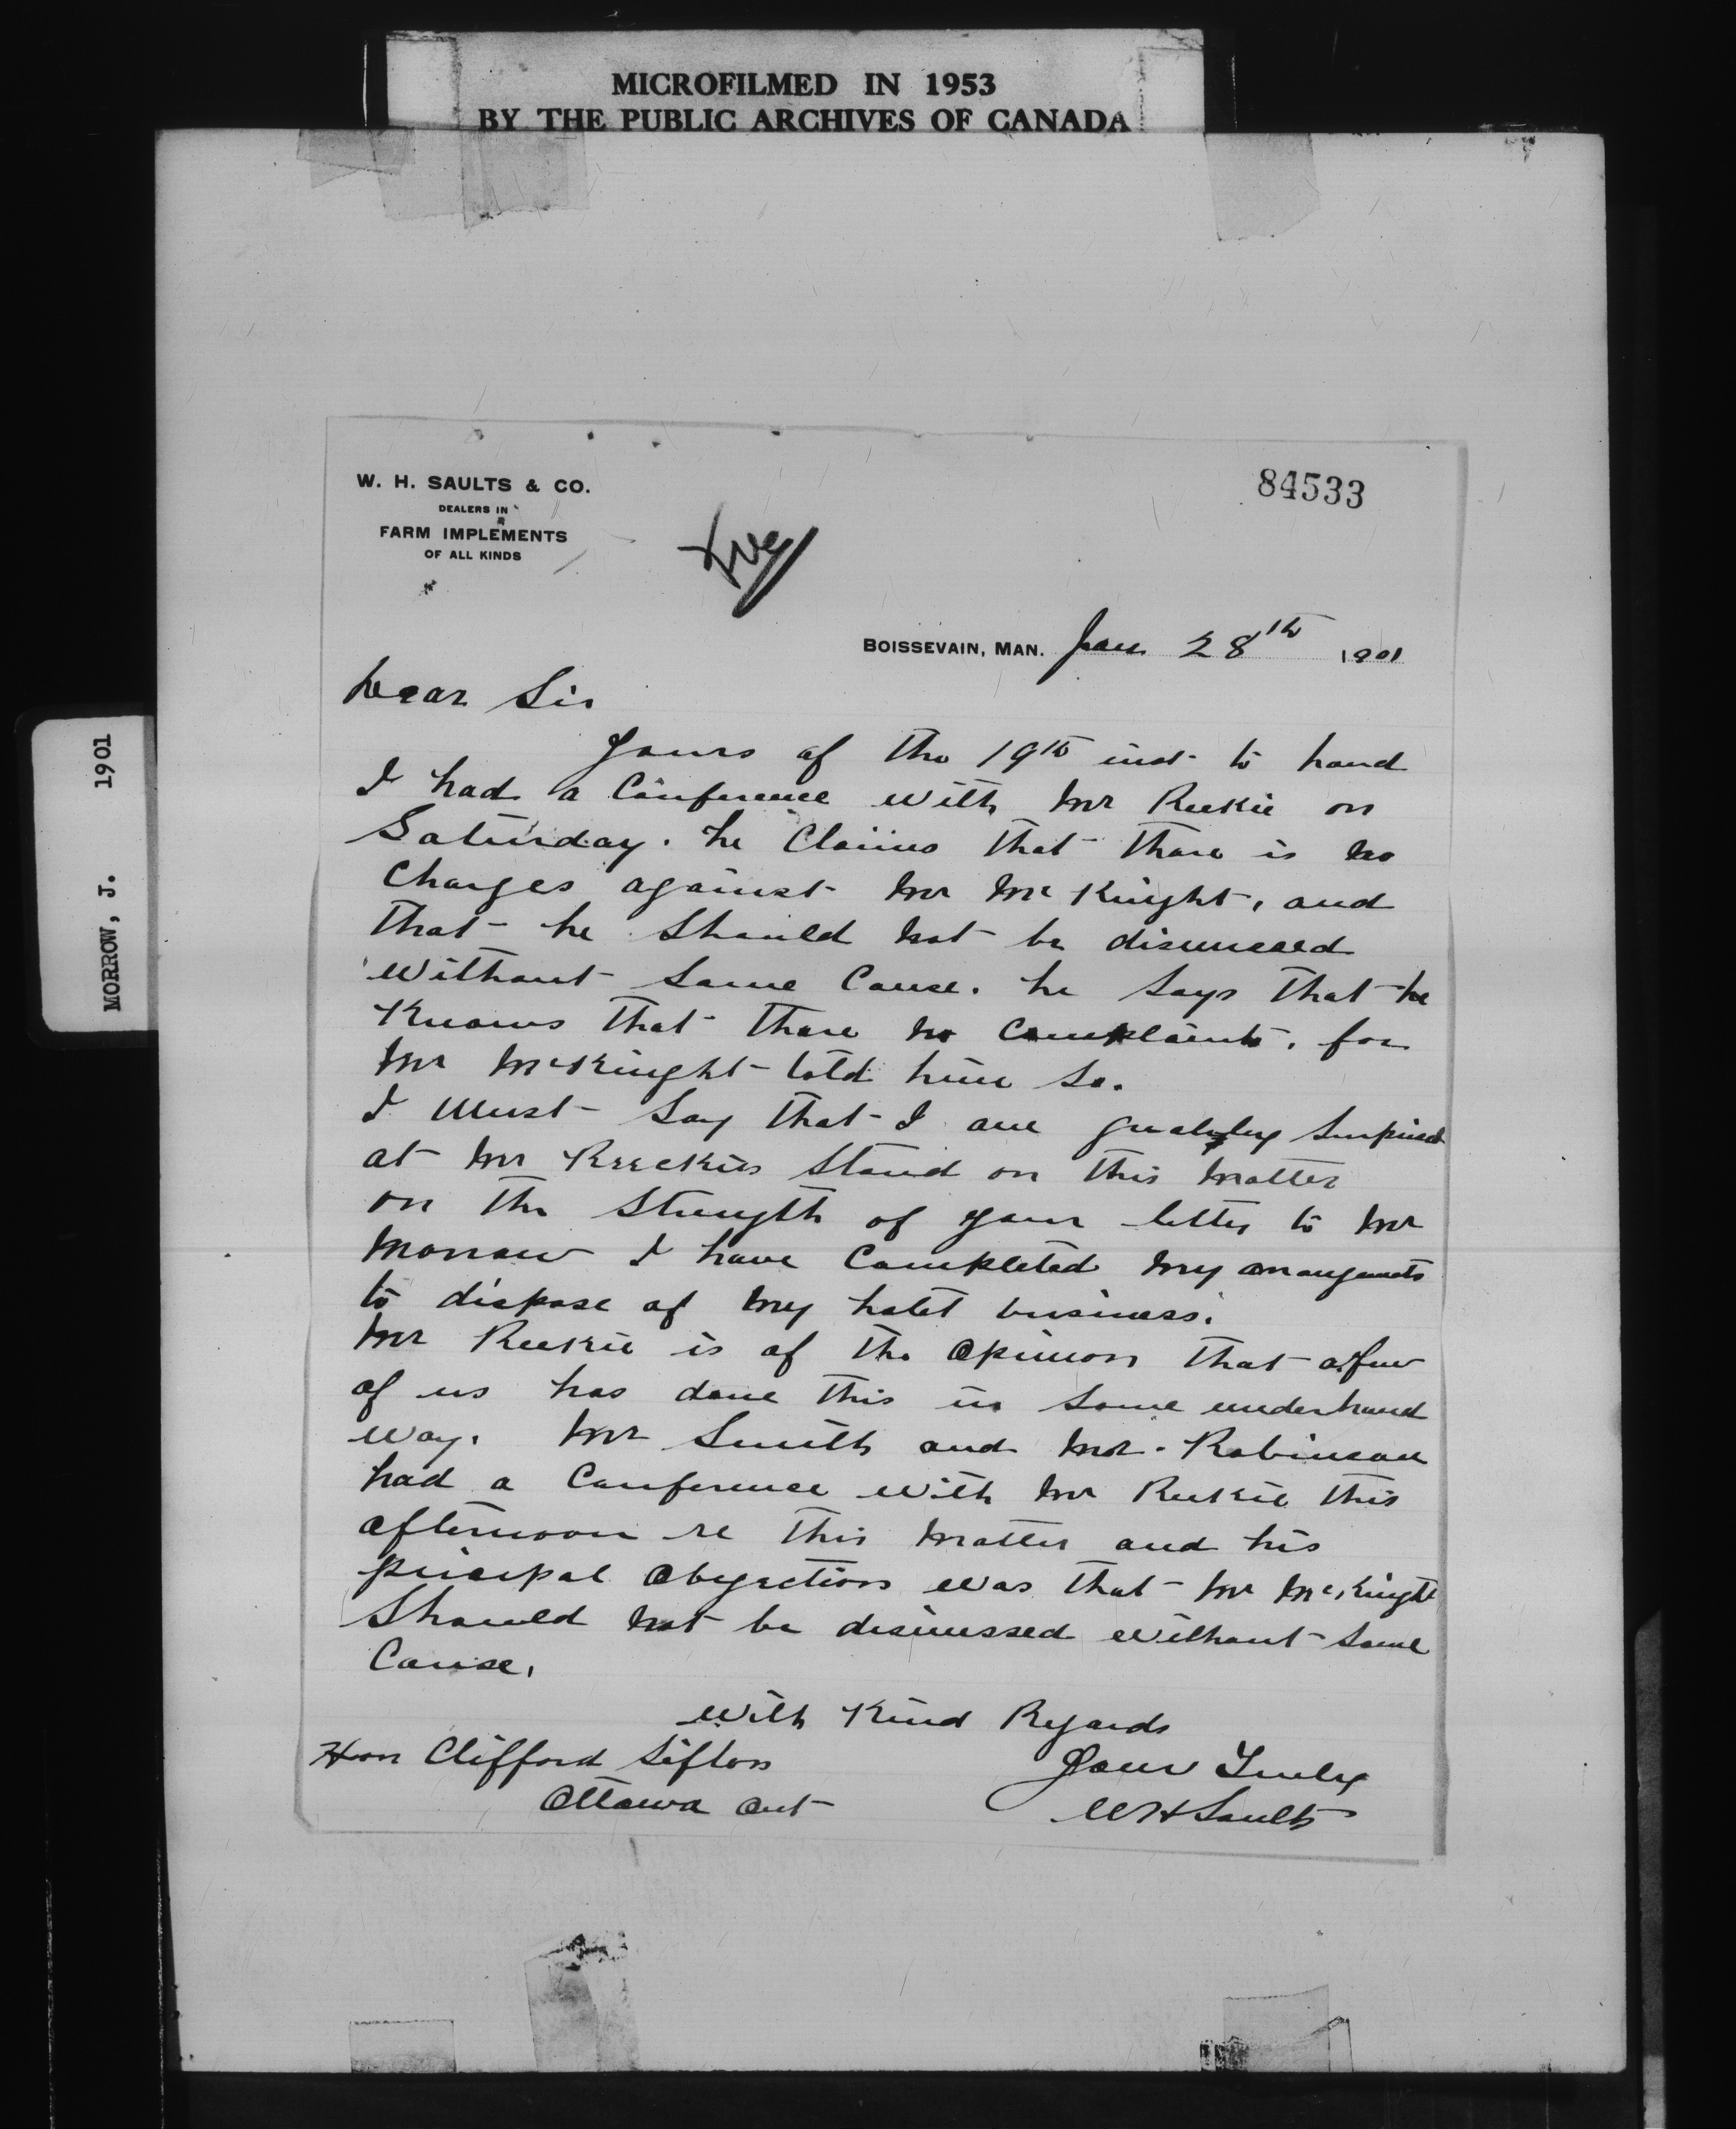 MICROFILMED IN 1953
BY THE PUBLIC ARCHIVES OF CANADA
MORROW, J. 1901
W. H. SAULTS & CO.
DEALERS IN
FARM IMPLEMENTS
OF ALL KINDS
84533
BOISSEVAIN, MAN. Jan 28th 1901
Dear Sir
Yours of the 19th inst to hand
I had a Conference with Mr Reekie on
Saturday. he Claims that there is no
Charges against Mr McKnight, and
that he should not be dismissed
without some Cause. he says that he
Knows that there no complaints. for
Mr McKnight told him so.
I must say that I am greatly surprised
at Mr Reekies stand on this matter
on the strength of your letter to Mr
Morrow I have Completed my arrangments
to dispose of my hotel business.
Mr Reekie is of the opinion that a few
of us has done this in some underhand
way. Mr Smith and Mr. Robinson
had a Conference with Mr Reekie this
afternoon re this matter and his
principal objection was that Mr McKnight
should not be dismissed without some
Cause,
with Kind Regards
Hon Clifford Sifton
Your Truly
Ottawa Ont
W H Saults